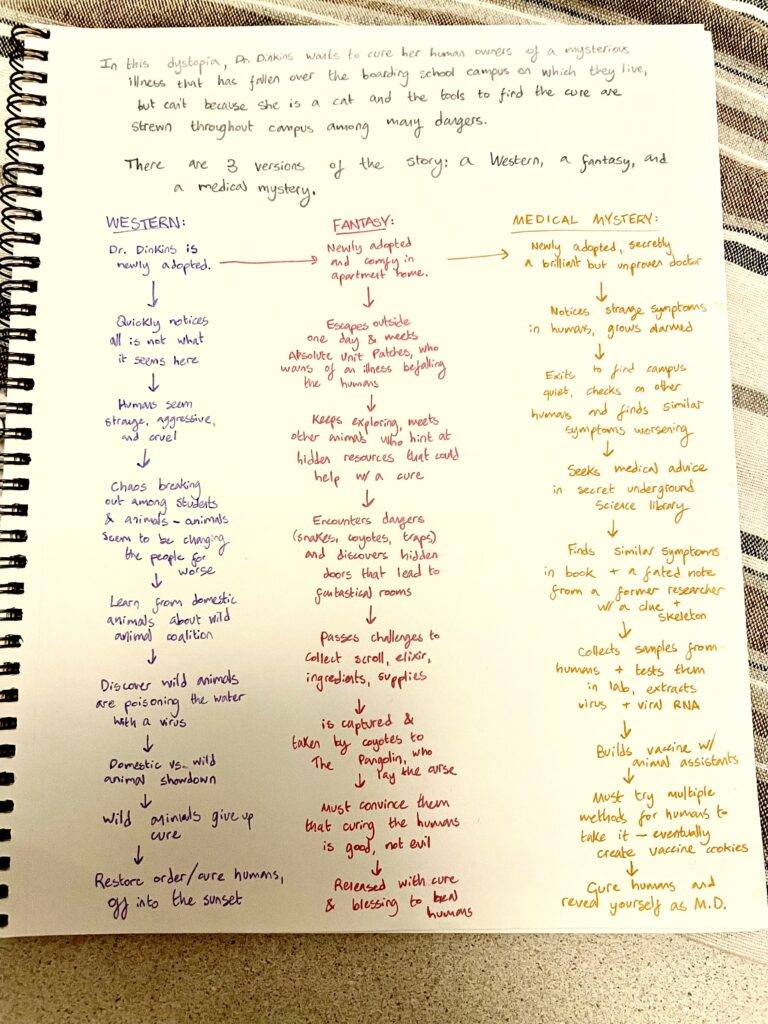 In this dystopia, Dr. Dinkins wants to cure her human owners of a mysterious
illness that has fallen over the boarding school campus on which they live,
but can't because she is a cat and the tools to find the cure are
strewn throughout campus among many dangers.
There are 3 versions of the story: a Western, a fantasy, and
a medical mystery.
WESTERN:
Dr. Dinkins is
newly adopted.
Quickly notices
all is not what
it seems here
Humans seem
strange, aggressive,
and cruel
Chaos breaking
out among students
& animals - animals
seem to be changing
the people for
worse
Learn from domestic
animals about wild
animal coalition
Discover wild animals
are poisoning the water
with a virus
Domestic vs. wild
animal showdown
Wild animals give up
cure
Restore order/cure humans,
off into the sunset
FANTASY:
Newly adopted
and comfy in
apartment home.
Escapes outside
one day & meets
Absolute Unit Patches, who
warns of an illness befalling
the humans
Keeps exploring, meets
other animals who hint at
hidden resources that could
help w/ a cure
Encounters dangers
(snakes, coyotes, traps)
and discovers hidden
doors that lead to
fantastical rooms
Passes challenges to
collect scroll, elixir,
ingredients, supplies
is captured &
taken by coyotes to
The Pangolin, who
lay the curse
Must convince them
that curing the humans
is good, not evil
Released with cure
& blessing to heal
humans
MEDICAL MYSTERY:
Newly adopted, secretly
a brilliant but unproven doctor
Notices strange symptoms
in humans, grows alarmed
Exits to find campus
quiet, checks on other
humans and finds similar
symptoms worsening
Seeks medical advice
in secret underground
Science library
Finds similar symptoms
in book + a fated note
from a former researcher
w/ a clue +
skeleton
Collects samples from
humans + tests them
in lab, extracts
virus + viral RNA
Builds vaccine w/
animal assistants
Must try multiple
methods for humans to
take it - eventually
create vaccine cookies
Cure humans and
reveal yourself as M.D.